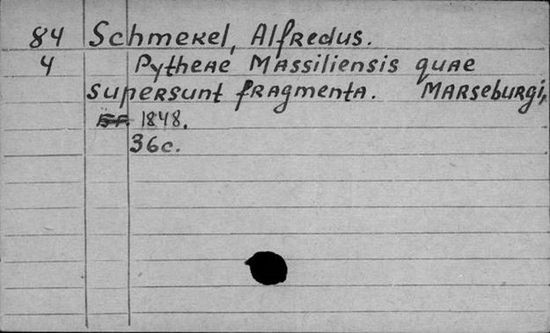 84 Schmekel, Alfredus.
4 Pytheae Massiliensis quae
supersunt fragmenta. Marseburgi,
1848.
36c.